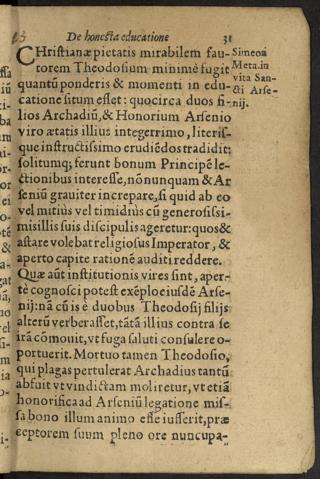 De honesta educatione 31
CHristianæ pietatis mirabilem fau- Simeon
torem Theodosium minimè fugit Meta.in
quantũ ponderis & momenti in edu- vita San-
catione situm esset: quocirca duos fi- cti Arse-
lios Archadiũ, & Honorium Arsenio nij.
viro ætatis illius integerrimo, literis-
que instructissimo erudiẽdos tradidit:
solitumq; ferunt bonum Principẽ le-
ctionibus interesse, nõnunquam & Ar
seniũ grauiter increpare, si quid ab eo
vel mitiùs vel timidiùs cũ generosissi-
misillis suis discipulis ageretur: quos &
astare volebat religiosus Imperator, &
aperto capite rationẽ auditi reddere.
Quæ aũt institutionis vires sint, aper-
tè cognosci potest exẽplo eiusdẽ Arse-
nij: nã cũ is è duobus Theodosij filijs
alterũ verberasset, tãtã illius contra se
irã cõmouit, vt fuga saluti consulere o-
portuerit. Mortuo tamen Theodosio,
qui plagas pertulerat Archadius tantũ
abfuit vt vindictam moliretur, vt etiã
honorifica ad Arseniũ legatione mis-
sa bono illum animo esse iusserit, præ
ceptorem suum pleno ore nuncupa-